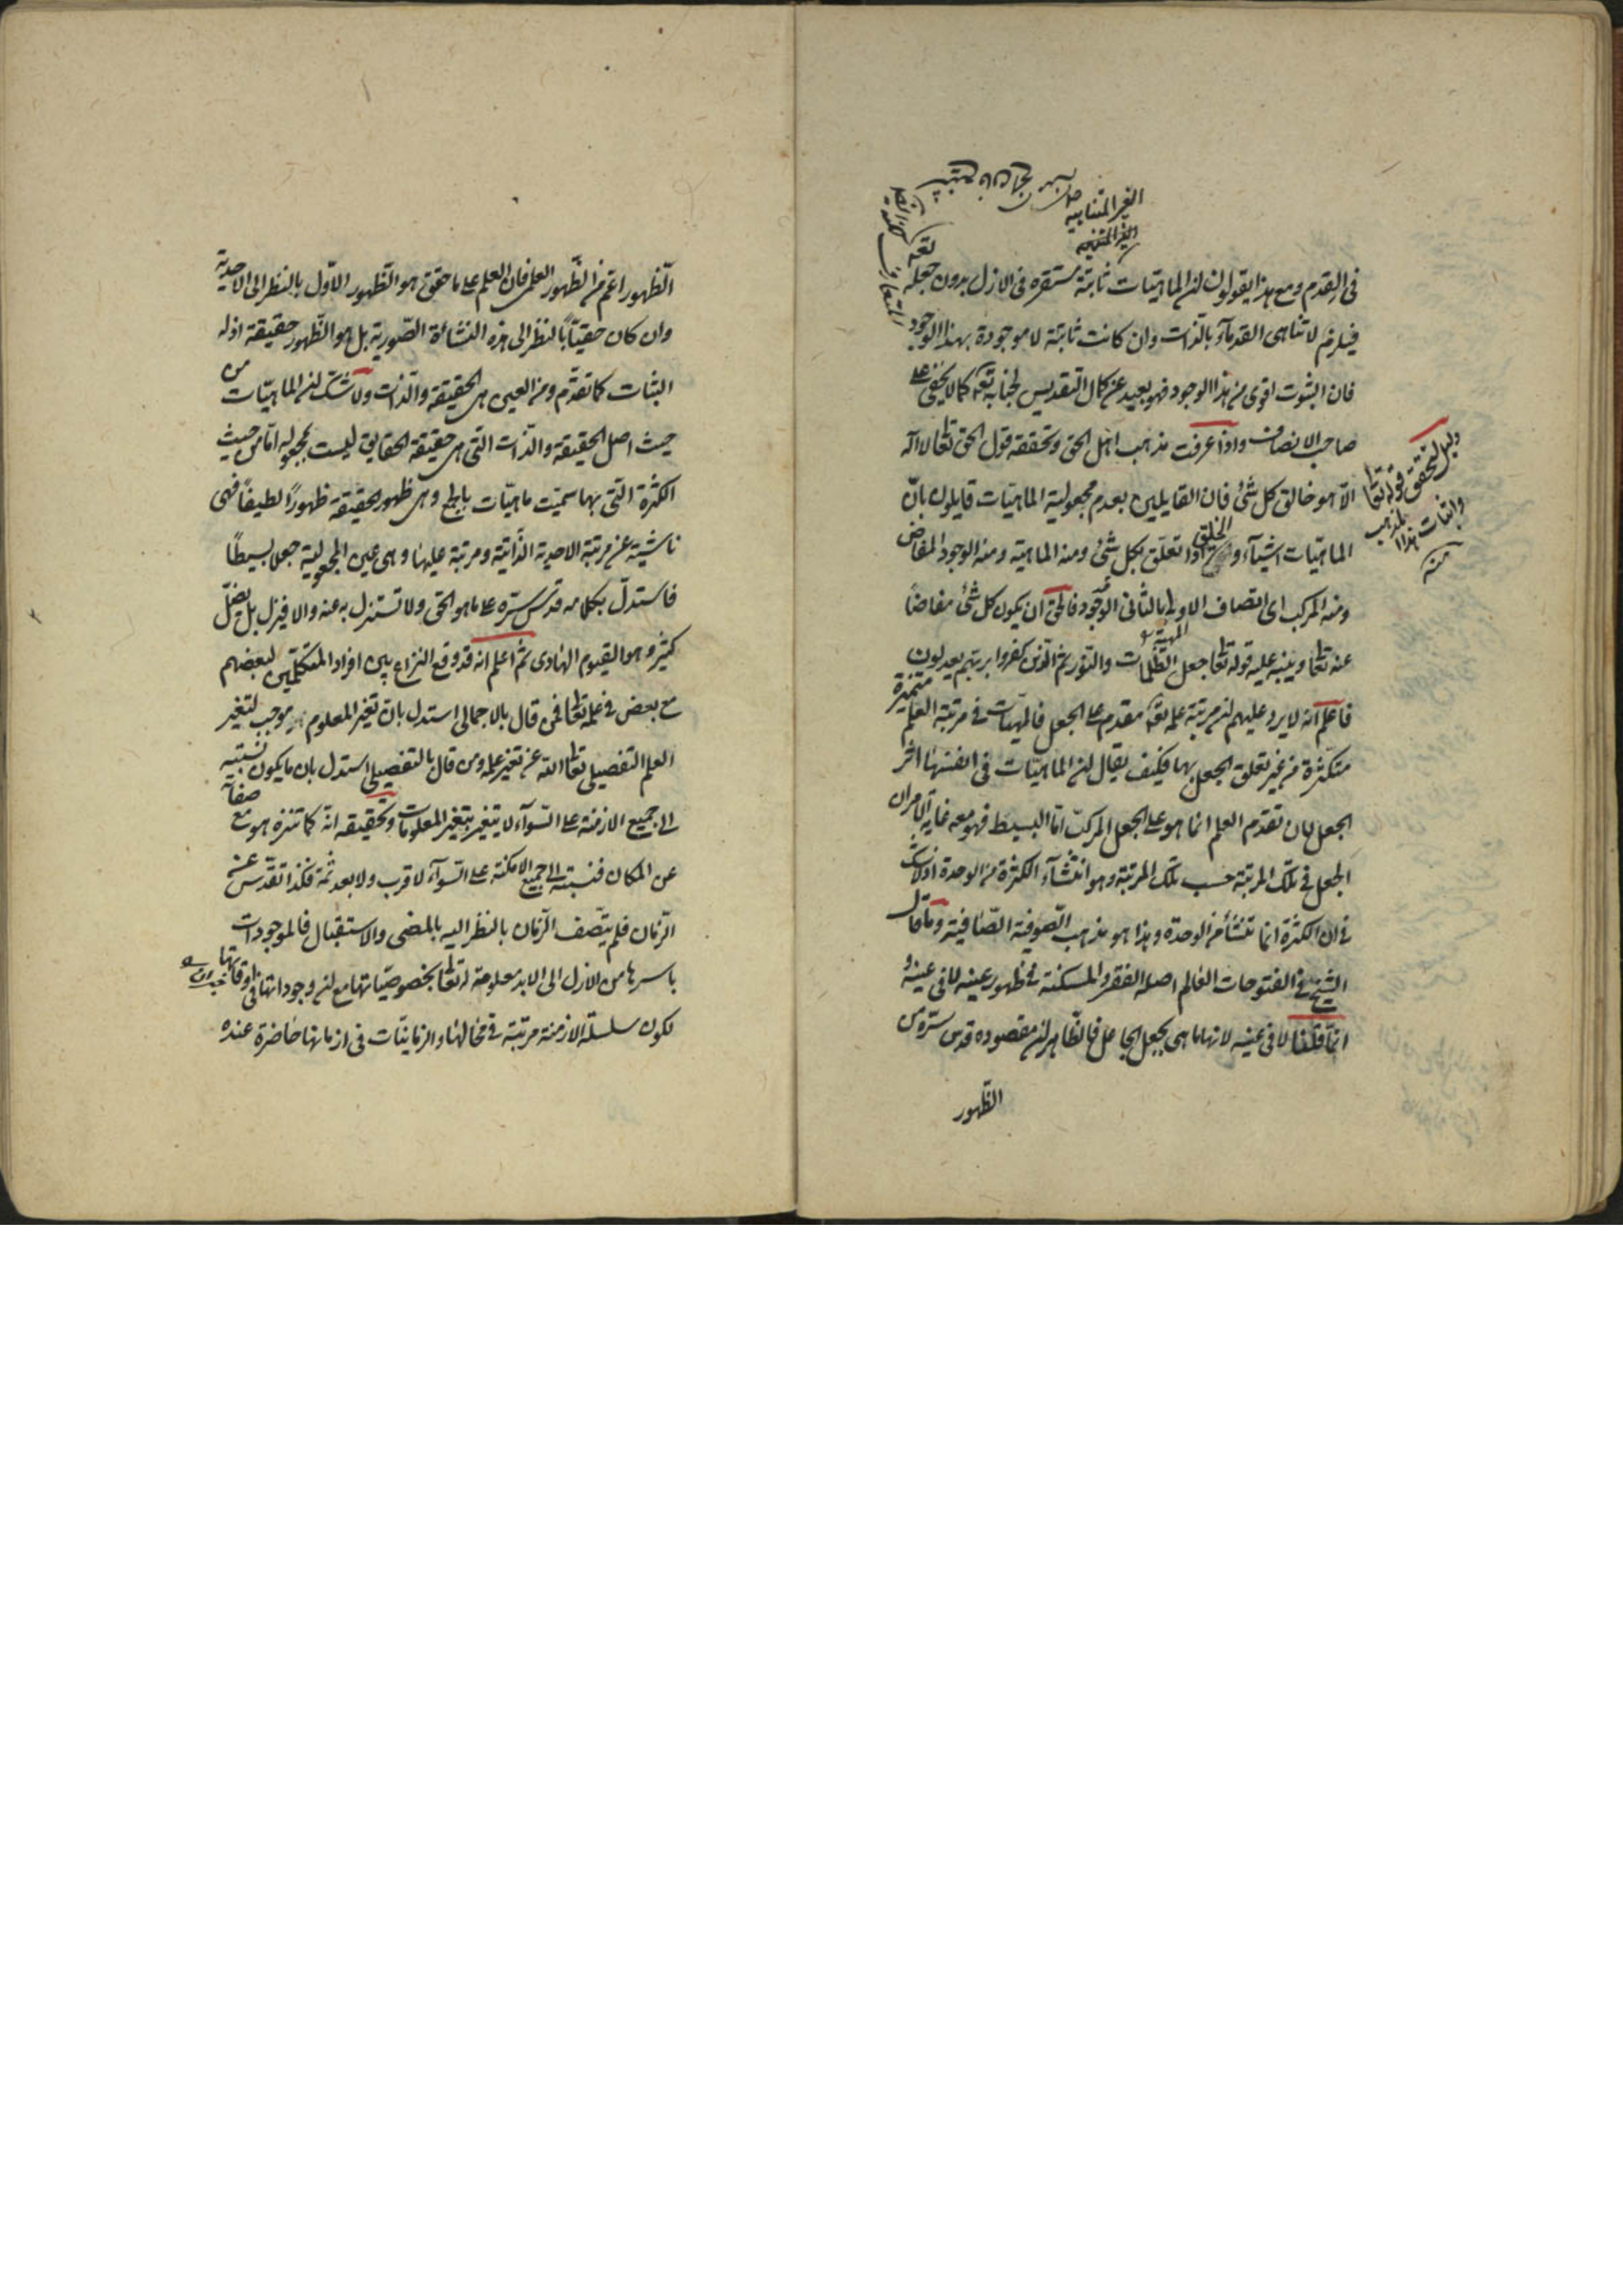 الغير المتناهية
الغير المتنهيه
في القدم ومع هذا يقولون ان الماهيّات ثابتة مستقره في الازل بدون جعله تعه
فيلزم لا تناهى القدمآء بالذات وان كانت ثابتة لا موجودة بهذا الوجود
فان الثبوت اقوى من هذا الوجود فهو بعيد عن كمال التقديس لجنابه تعه كما لا يخفى على
صاحب الانصاف واذا عرفت مذهب اهل الحق وتحققه قول الحق تعالى لا اله
الا هو خالق كل شئ فان القايلين بعدم مجعولية الماهيّات قايلون بانّ
الماهيّات اشيآء والخلق اذا تعلّق بكل شئ ومنه الماهية ومنه الوجود المفاض
ومنه المركب اى اتصاف الاولى بالثانى الوجود فالحق ان يكون كل شئ مفاضاً
عنه تعالى وينبه عليه قوله تعالى جعل الظلمات والنور ثم الذين كفروا بربهم يعدلون
الماهية
فاعلم انه لا يرد عليهم ان مرتبة علمه تعه مقدم على الجعل فالمهيّات في مرتبة العلم متميّزة
متكثرة من غير تعلق الجعل بها فكيف يقال ان الماهيّات فى انفسها اثر
الجعل لان تقدم العلم انما هو على الجعل المركب امّا البسيط فهو معه غاية الامر ان
الجعل في تلك المرتبة حسب تلك المرتبة وهو انتشآء الكثرة من الوحدة اذ لا شك
في ان الكثرة انما تنشأ من الوحدة وهذا هو مذهب الصّوفية الصّافية وما قال
الشيخ في الفتوحات العالم اصله الفقر والمسكنة في ظهور عينه لا فى عينه و
انما قلنا لا فى عينه لانها ما هى بجعل الجاعل فالظاهر ان مقصوده قدس سره من
الظهور
دليل لتحقق قوله تعالى
واثبات هذا المذهب
منه
الظهور اعم من الظهور العلمى فان العلم على ما حقق هو الظهور الاوّل بالنظر الى الاحدية
وان كان حقيّاً بالنظر الى هذه النشاءة الصّورية بل هو الظهور حقيقة اذ له
الثبات كما تقدّم ومن العين هى الحقيقة والذات ولا شك ان الماهيّات من
حيث اصل الحقيقة والذات التى هى حقيقة الحقايق ليست بمجعولة امّا من حيث
الكثرة التى بها سميّت ماهيّات بالجعل وهى ظهور الحقيقة ظهوراً لطيفاً فهى
ناشية عن مرتبة الاحدية الذاتية ومرتبة عليها وهى عين المجعولية جعلا بسيطاً
فاستدلّ بكلامه قدس سره على ما هو الحق ولا تستنزل به عنه والا فيزل بل يضلّ
كثير وهو القيوم الهادى ثم اعلم انه قد وقع النزاع بين افراد المتكلمين لبعضهم
مع بعض في علمه تعالى فمن قال بالاجمالى استدل بان تغير المعلوم موجب لتغير
العلم التفصيلى تعالى الله عن تغير علمه ومن قال بالتفصيلى استدل بان ما يكون نسبته
الى جميع الازمنة على السّوآء لا يتغير بتغير المعلومات وتحقيقه انّه كما تنزه هو مع صفاته
عن المكان فنسبته الى جميع الامكنة على السّوآء لا قرب ولا بعد ثمة فكذا تقدّس عن
الزمان فلم يتّصف الزمان بالنظر اليه بالمضى والاستقبال فالموجودات
باسرها من الازل الى الابد معلومة له تعالى بخصوصيّاتها مع ان وجوداتها فى اوقاتها
لكون سلسلة الازمنة مرتبة في محالها والزمانيّات فى ازمانها حاضرة عنده